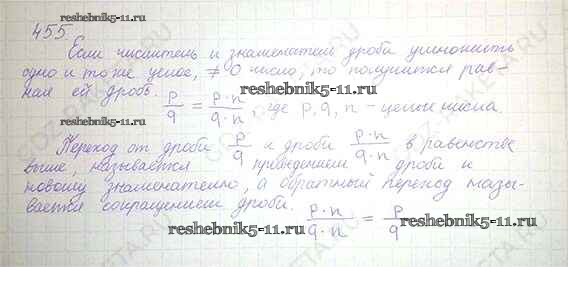 reshebnik5-11.ru
455.
Если числитель и знаменатель дроби умножить
одно и то же целое, ≠ 0 число, то получится рав-
ная ей дробь. p/q = p·n/q·n где p, q, n - целые числа
reshebnik5-11.ru
Переход от дроби p/q к дроби p·n/q·n в равенстве
выше, называется приведением дроби к
reshebnik5-11.ru
новому знаменателю, а обратный переход назы-
вается сокращением дроби. p·n/q·n = p/q
reshebnik5-11.ru
reshebnik5-11.ru